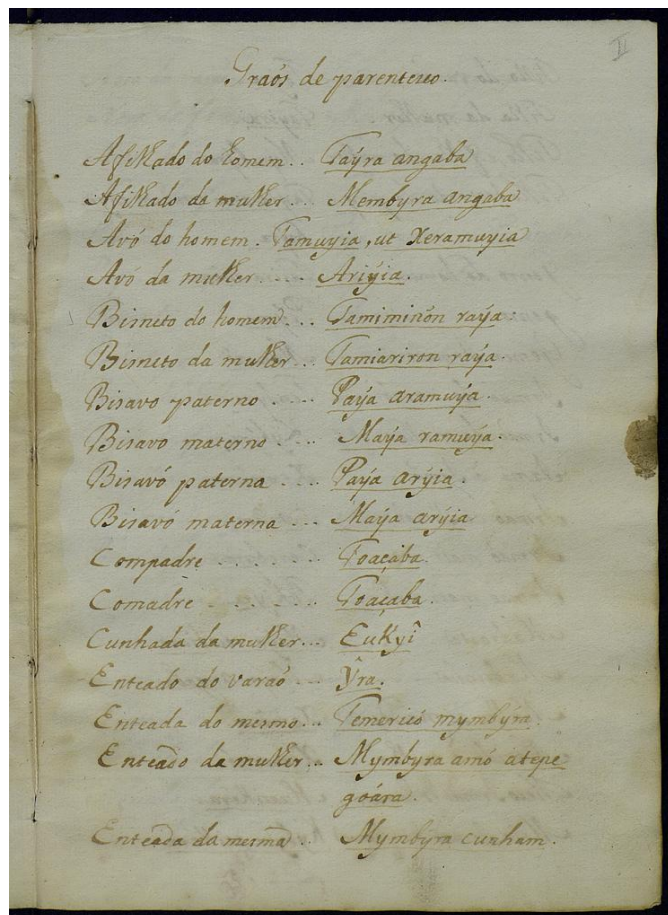 II
Graós de parentesco.
Afilhado do homem.. Taÿra angaba
Afilhado da mulher. Membyra angaba
Avó do homem. Tamuyia, ut Xeramuyia
Avó da mulher.... Ariÿia.
Bisneto do homem... Tamiminõn raÿa.
Bisneto da mulher... Tamiariron raÿa.
Bisavo paterno .... Paÿa aramuÿa.
Bisavo materno .... Maÿa ramuÿa.
Bisavó paterna .... Paÿa arÿia.
Bisavó materna ... Maÿa arÿia
Compadre ....... Toaçaba.
Comadre ....... Toaçaba.
Cunhada da mulher... Eukyî
Enteado do varaõ ... Ŷra.
Enteada do mesmo... Temericó mymbÿra.
Enteado da mulher... Mymbyra amó atepe
goára.
Enteada da mesma.. Mymbÿra cunham.